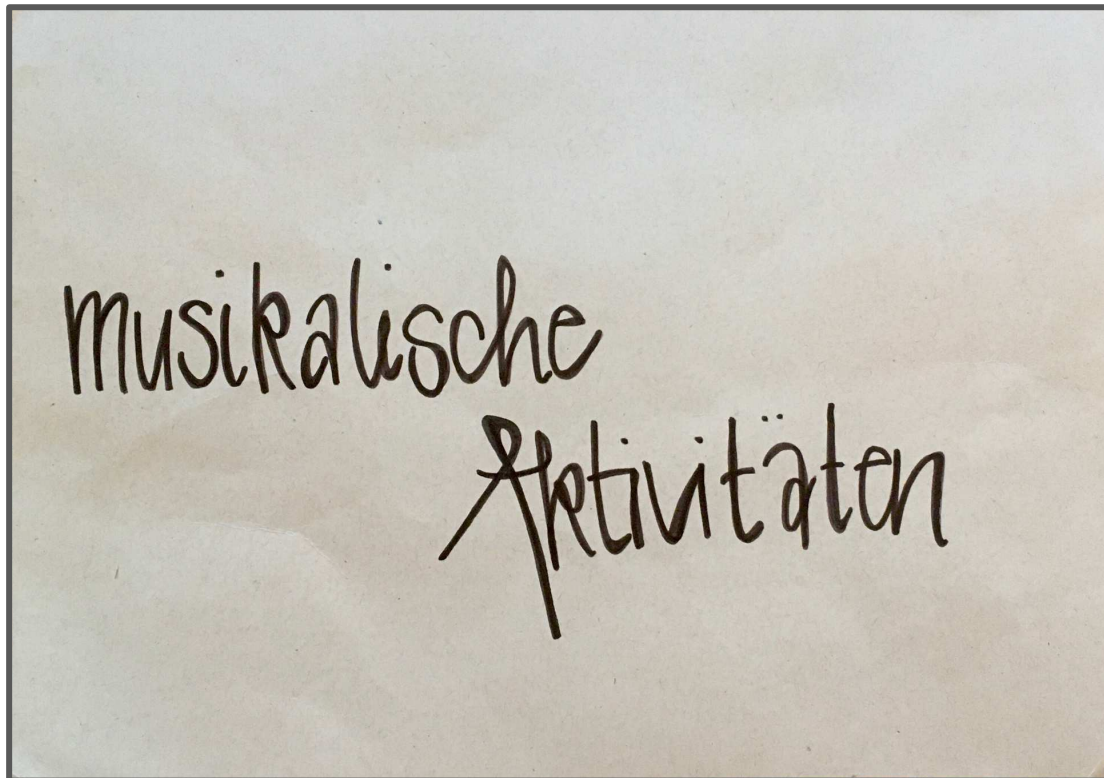 musikalische
Aktivitäten